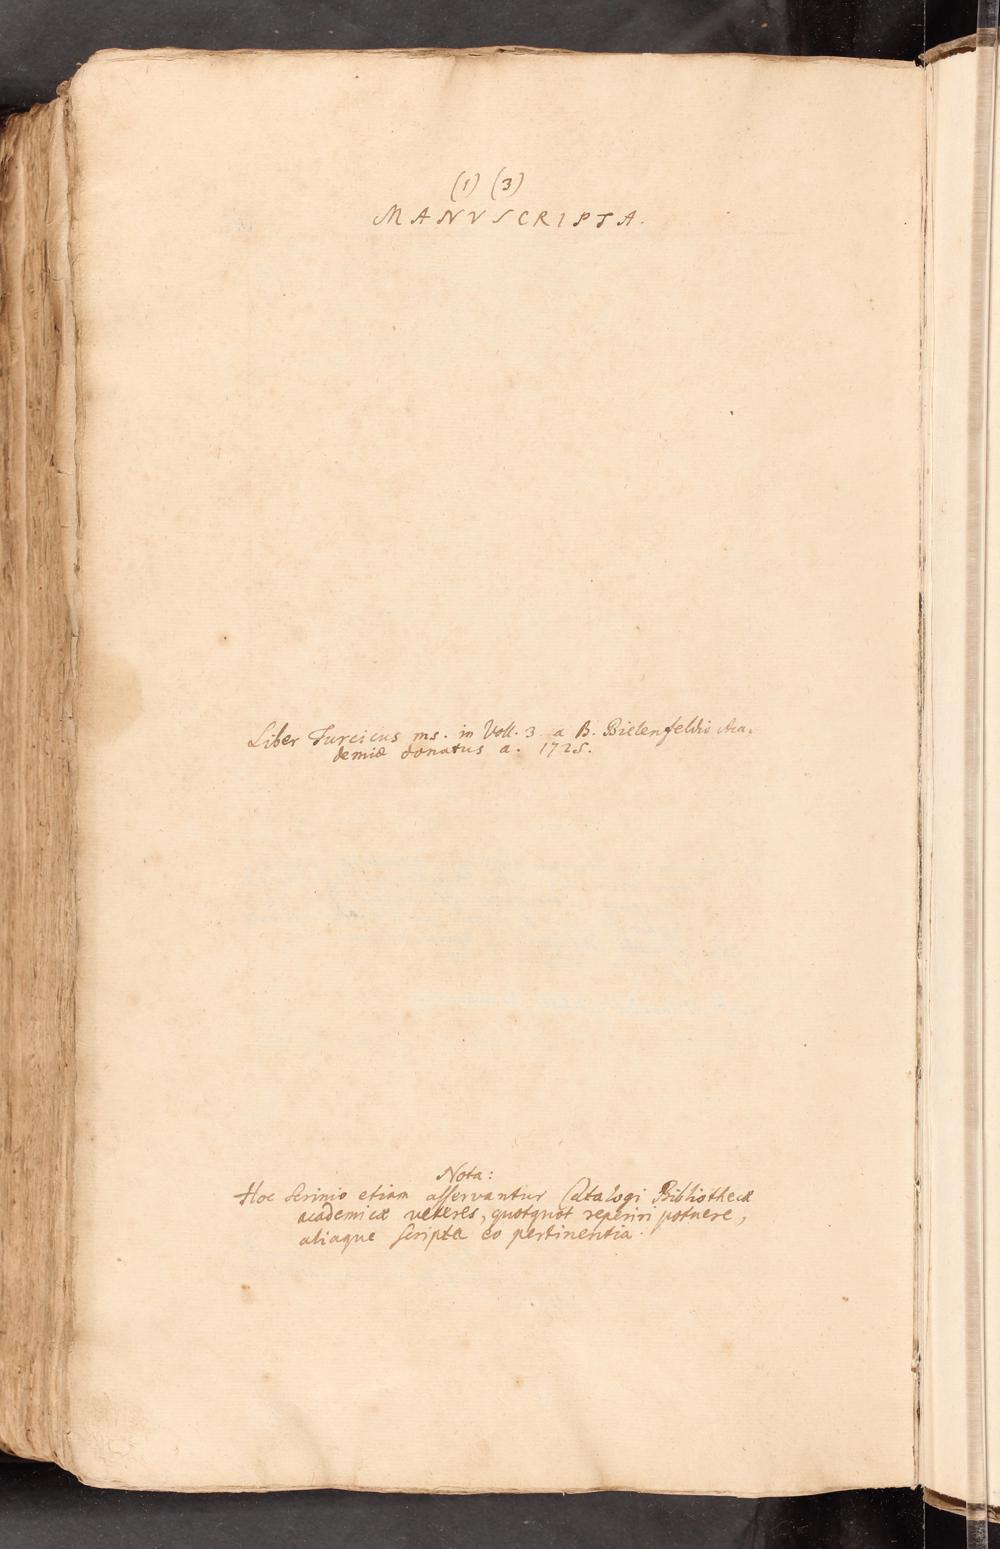 (1) (3)
MANVSCRIPTA.
Liber Turcicus ms. in Voll. 3 a B. Bielenfeldio Aca-
demiæ donatus a. 1725.
Nota:
Hoc Scrinio etiam asservantur Catalogi Bibliothecæ
academicæ veteres, quotquot reperiri potuere,
aliaque scripta eo pertinentia.